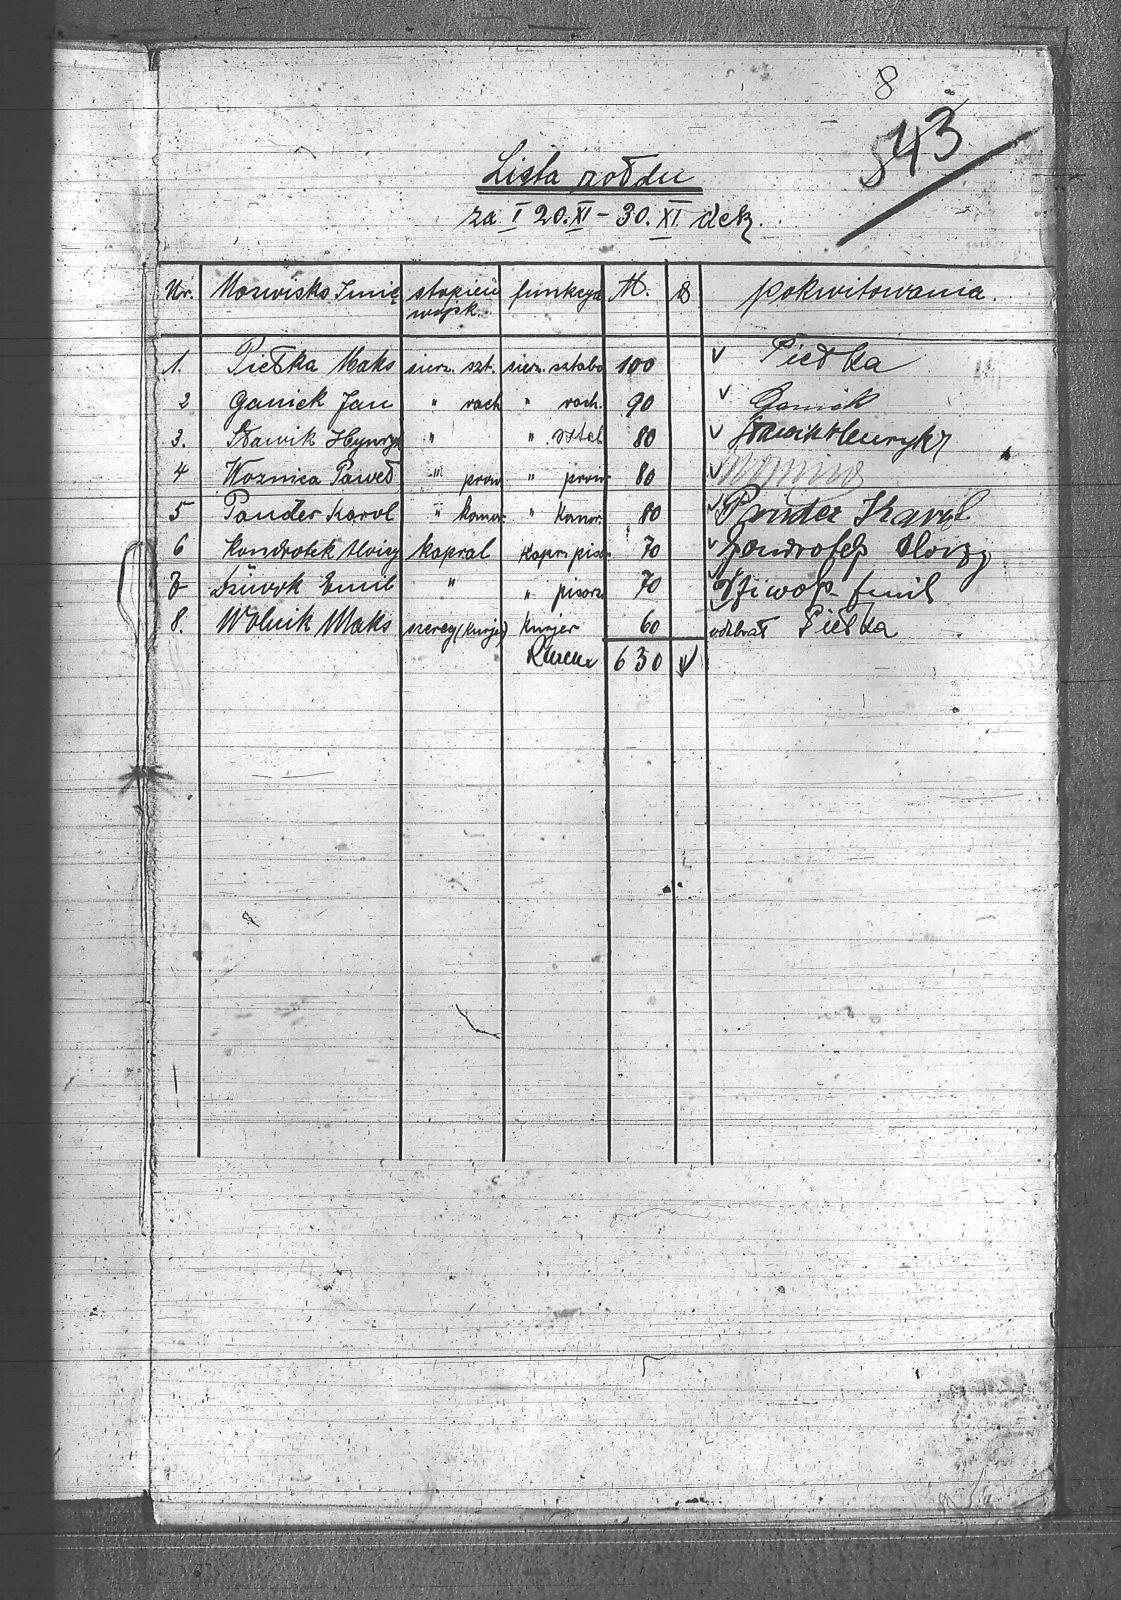 8
543
Lista żołdu
za I 20.XI - 30.XI dek.
Nr. Nazwisko Imię stopień wojsk. funkcya M. pokwitowania.
1. Pietka Maks sierz. szt. sierz. sztabo 100 v Pietka
2 Ganiek Jan " rach " rach. 90 v Ganiek
3. Sławik Henryk " " 80 v Sławik Henryk
4 Woznica Paweł " prow " prow 80 v
5 Pander Karol " kanc. " kanc. 80 v Pander Karol
6 Kondrotek Alojzy kapral kapr. pisar 70 v Kondrotek Alojzy
7 Emil " " pisarz 70 v Emil
8. Wolnik Maks szereg (kurjer) kurjer 60 odebrał Pietka
Razem 630